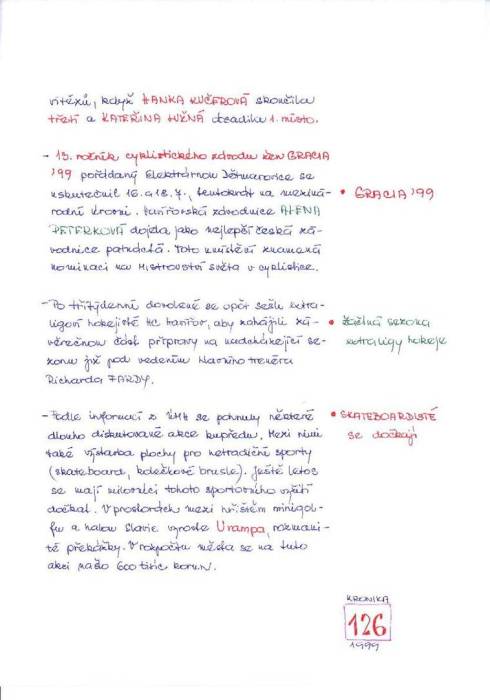 vítězů, když HANKA KUČEROVÁ skončila
třetí a KATEŘINA LUŽNÁ obsadila 1. místo.
- 13. ročník cyklistického závodu žen GRACIA
'99 pořádaný Elektrárnou Dětmarovice se
uskutečnil 16. a 18. 7., tentokrát na meziná-
rodní úrovni. Karvinská závodnice ALENA
PETERKOVÁ dojela jako nejlepší česká zá-
vodnice patnáctá. Toto umístění znamená
nominaci na Mistrovství světa v cyklistice.
• GRACIA '99
- Po třítýdenní dovolené se opět sešli extra-
ligoví hokejisté HC Karviná, aby zahájili zá-
věrečnou část přípravy na nadcházející se-
zonu již pod vedením hlavního trenéra
Richarda FARDY.
• Začíná sezona
extraligy hokeje
- Podle informací z se pohnuly některé
dlouho diskutované akce kupředu. Mezi nimi
také výstavba plochy pro netradiční sporty
(skateboard, kolečkové brusle). Ještě letos
se mají milovníci tohoto sportovního vyžití
dočkat. V prostorách mezi hřištěm minigol-
fu a halou Slavie vyroste Urampa, rozmani-
té překážky. V rozpočtu města se na tuto
akci našlo 600 tisíc korun.
• SKATEBOARDISTÉ
se dočkají
KRONIKA
126
1999